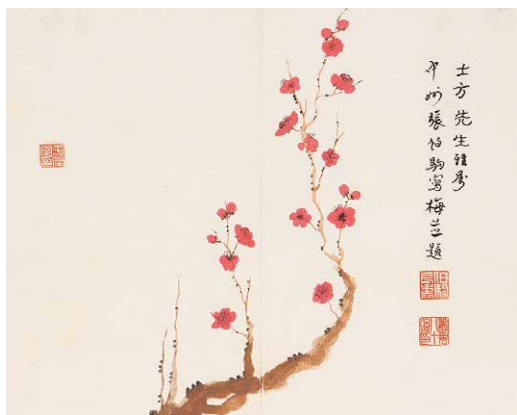 士方先生雅屬
中州張伯駒寫梅並題